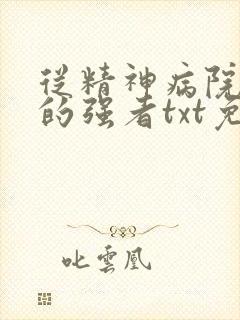 從精神病院
的强者txt免
叱雲凰